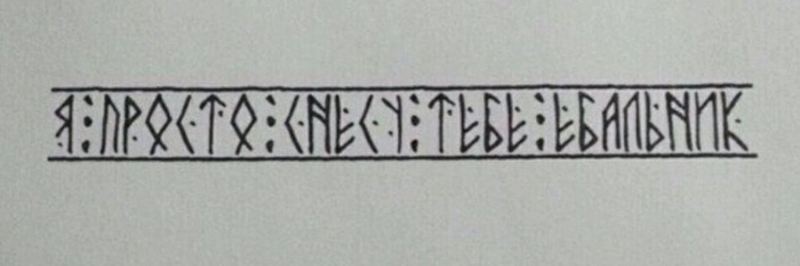 Я:ПРОСТО:СНЕСУ:ТЕБЕ:ЕБАЛЬНИК